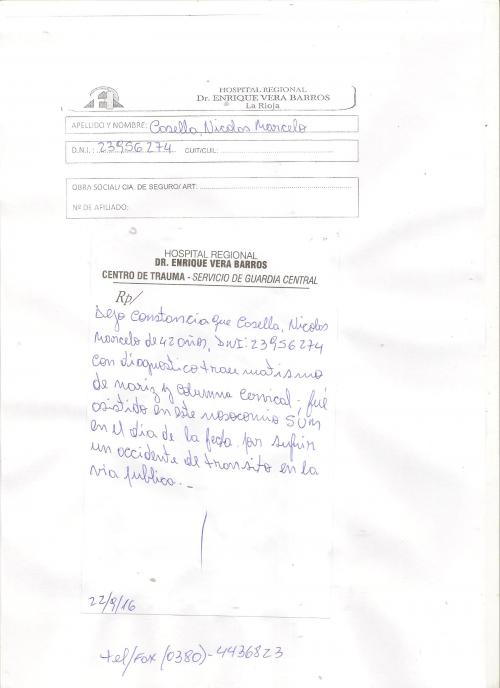 HOSPITAL REGIONAL
Dr. ENRIQUE VERA BARROS
La Rioja
APELLIDO Y NOMBRE: Cosella, Nicolas Marcelo
D.N.I. : 23956274 CUIT/CUIL:
OBRA SOCIAL/ CIA. DE SEGURO/ ART:
Nº DE AFILIADO:
HOSPITAL REGIONAL
DR. ENRIQUE VERA BARROS
CENTRO DE TRAUMA - SERVICIO DE GUARDIA CENTRAL
Rp/
Dejo Constancia que Cosella, Nicolas
Marcelo de 42 años, DNI: 23956274
con diagnostico traumatismo
de nariz y columna cervical, fué
asistido en este nosocomio
en el dia de la fecha por sufrir
un accidente de transito en la
via publica.-
22/9/16
tel/fax (0380)-4436823